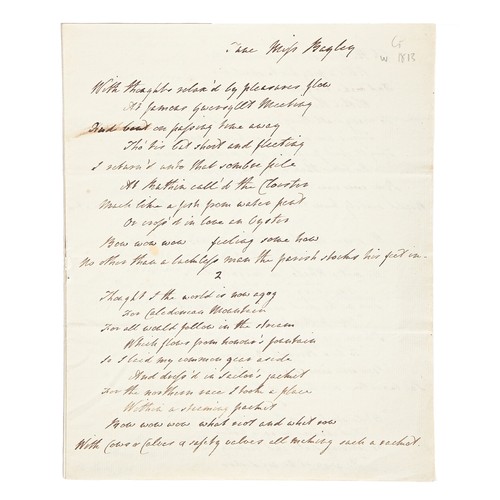 Tune Miss Bagley
W 1813
With thoughts relax'd by pleasures flow
At famous Gwersyllt Meeting
And bent on passing time away
Tho' his but short and fleeting
I return'd unto that sombre pile
At Ruthin call'd the Cloister
Much like a fish from water put
Or cross'd in love an Oyster
Bow wow wow feeling some how
No other than a luckless man the parish stocks his feet in
2
Thought I the world is now agog
For Caledonian Mountain
For all would follow in the stream
Which flows from honor's fountain
So I laid my common gear aside
And dress'd in sailor's jacket
For the northern race I took a place
Within a steaming packet
Bow wow wow what riot and what row
With Cows & Calves & safety valves all making such a racket.